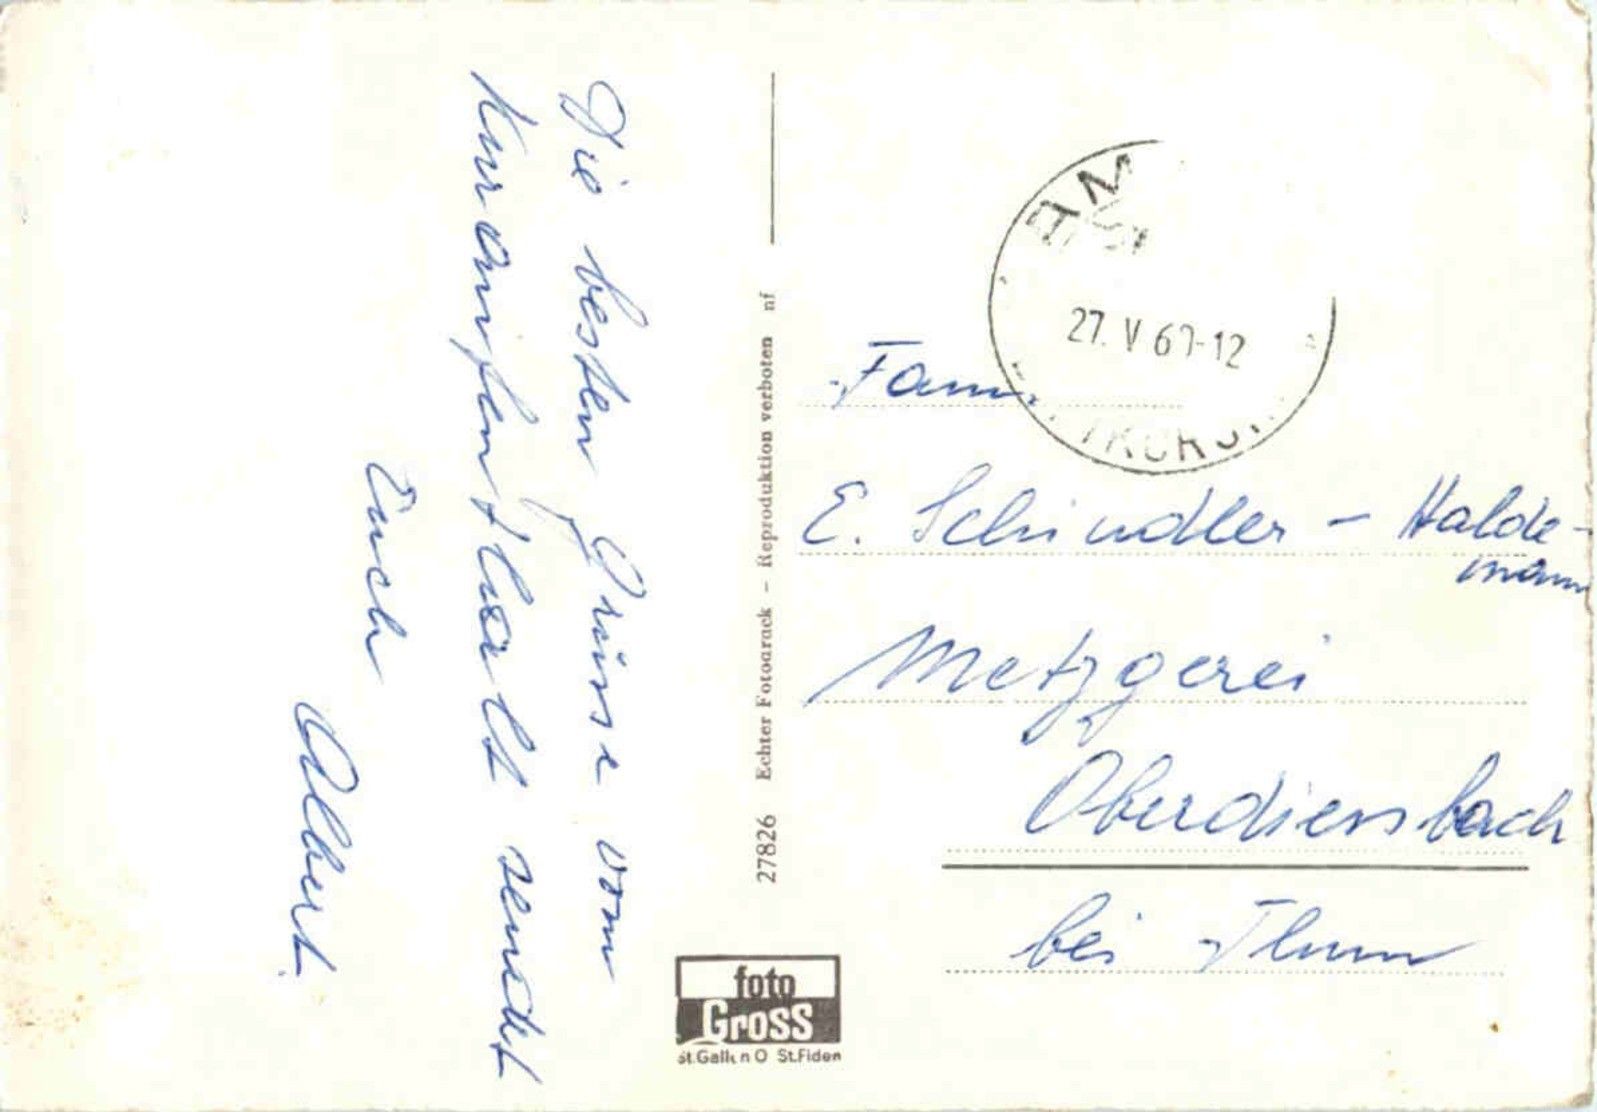 Die besten Grüsse vom
Kuraufenthalt sendet
Euch
Albert.
27826 Echter Fotodruck – Reproduktion verboten nf
foto
Gross
St.Gallen O St.Fiden
AM
27. V 6 -12
Fam.
E. Schindler – Halde-
mann
Metzgerei
Oberdiessbach
bei Thun